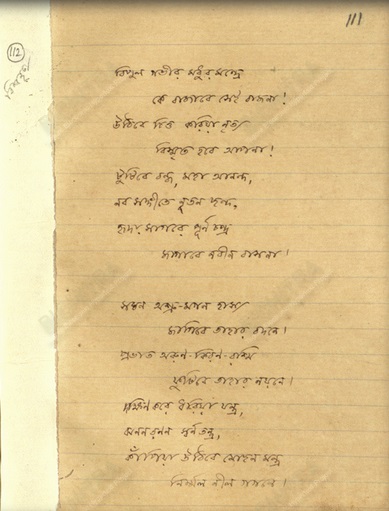 111
112
বিশ্বনৃত্য
বিপুল গভীর মধুর মন্দ্রে
কে বাজাবে সেই বাজনা!
উঠিবে চিত্ত করিয়া নৃত্য
বিস্মৃত হবে আপনা!
টুটিবে বন্ধ, মহা আনন্দ,
নব সঙ্গীতে নূতন ছন্দ,
হৃদয় সাগরে পূর্ণ চন্দ্র
জাগাবে নবীন বাসনা!
সঘন অশ্রু-মগন হাস্য
জাগিবে তাহার বদনে!
প্রভাত অরুণ-কিরণ-রশ্মি
ফুটিবে তাহার নয়নে!
দক্ষিণ করে ধরিয়া যন্ত্র,
ঝনন রণন স্বর্ণ তন্ত্র,
কাঁপিয়া উঠিবে মোহন মন্ত্র
নির্ম্মল নীল গগনে!